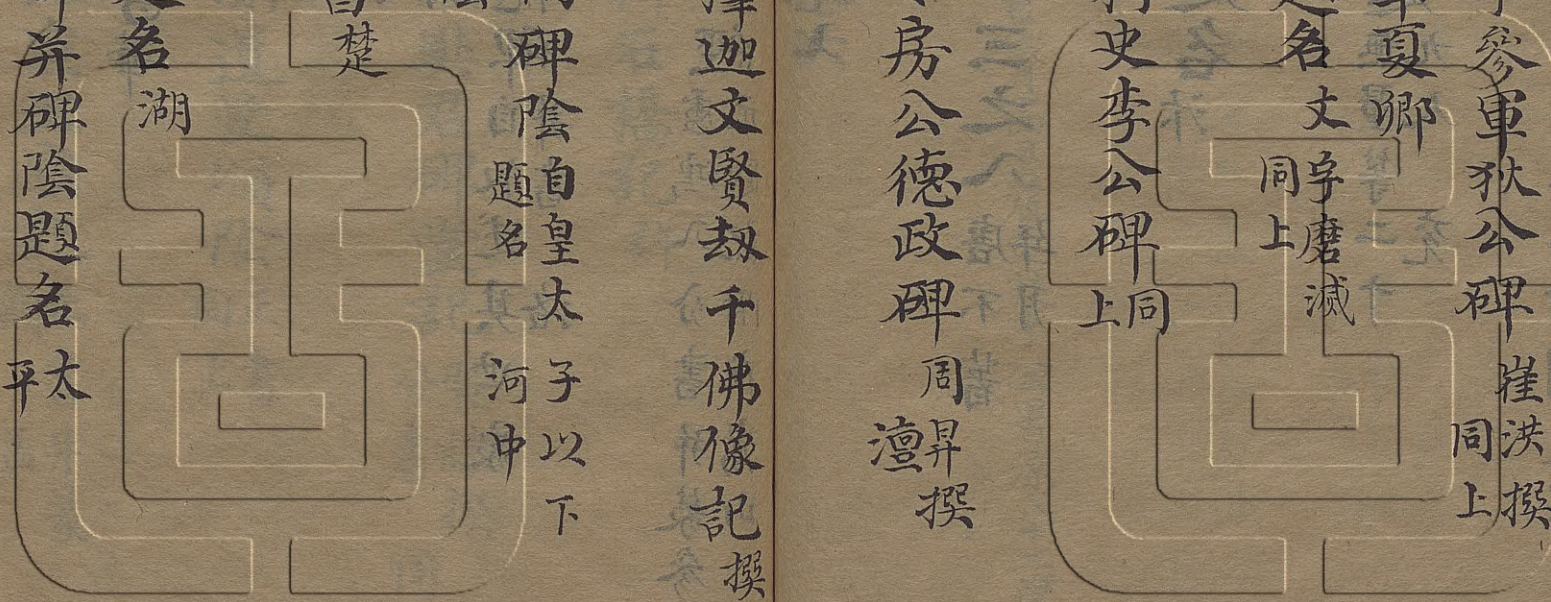 參軍狄公碑 崔洪撰 同上
夏鄉
名 文字磨滅 同上
史李公碑 同上
房公德政碑 周昇撰 澶
迦文賢劫千佛像記 撰
碑陰 自皇太子以下題名 河中
楚
名 湖
并碑陰題名 太平